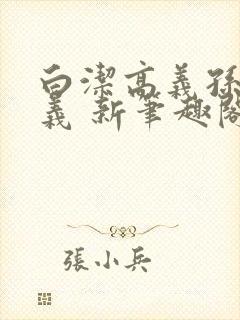 白潔高義孫
義 新筆趣閣
張小兵